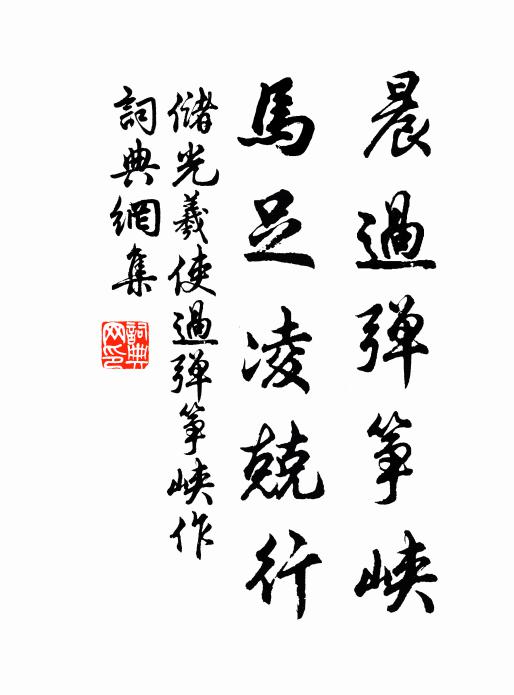 晨過彈箏峽
馬足凌兢行
儲光羲使過彈箏峽作
詞典網集
詞典
网印